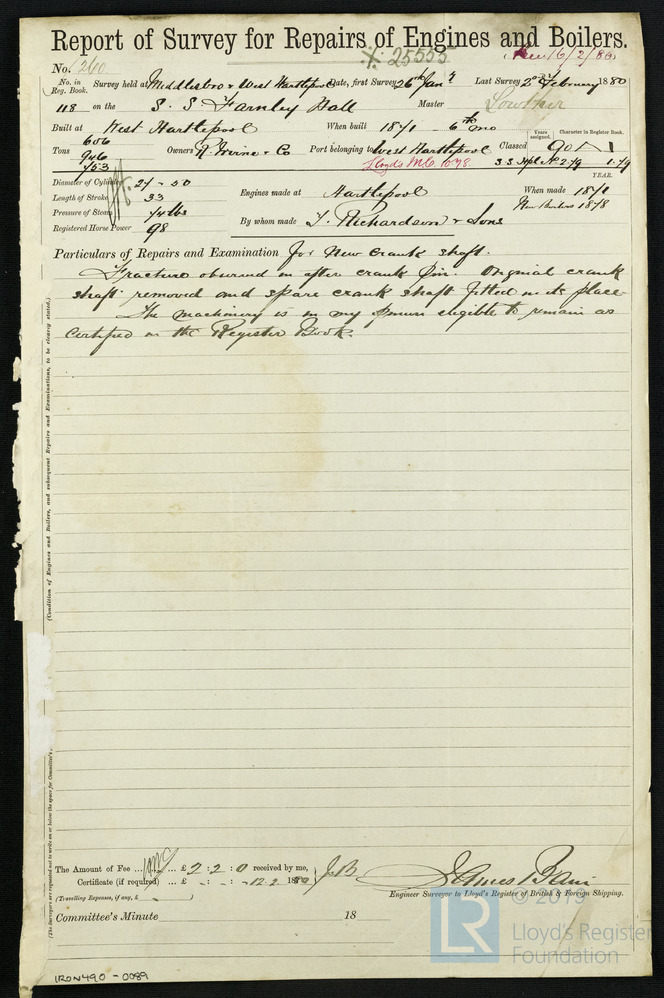 Report of Survey for Repairs of Engines and Boilers.
* 25555
16/2/80
No. 260
No. in Reg. Book. Survey held at Middlesbro & West Hartlepool Date, first Survey 26th Jany Last Survey 2nd February 1880
118 on the S. S Farnley Hall Master Lowther
Built at West Hartlepool When built 1871 - 6th mo Years assigned. Character in Register Book.
Tons 606 946 753 Owners R. Irvine & Co Port belonging to West Hartlepool Classed 90 A 1
Lloyds M.C. 10.78. S S Hpl No 2-79 1.79
YEAR.
Diameter of Cylinder 27 - 50
Length of Stroke 33 Engines made at Hartlepool When made 1871
Pressure of Steam 74 lbs New Boilers 1878
Registered Horse Power 98 By whom made T. Richardson & Sons
Particulars of Repairs and Examination for New Crank shaft.
Fracture observed in after crank pin. Original crank
shaft removed and spare crank shaft fitted in its place
The machinery is in my opinion eligible to remain as
certified in the Register Book.
(Condition of Engines and Boilers, and subsequent Repairs and Examinations, to be clearly stated.)
(The Surveyors are requested not to write on or below the space for Committee's Minute.)
The Amount of Fee ... £ 2 : 2 : 0 received by me, J.B
Certificate (if required) ... £ - : - : - 12.2 1880
(Travelling Expenses, if any, £ - )
James Bain
Engineer Surveyor to Lloyd's Register of British & Foreign Shipping.
Committee's Minute 18
© 2019
LR
Lloyd's Register
Foundation
IRON490 - 0089